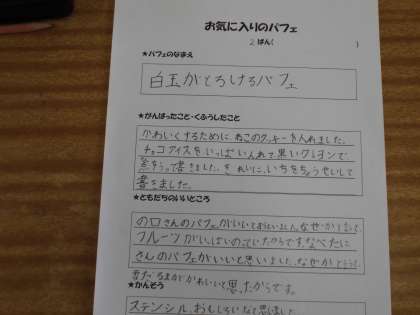 お気に入りのパフェ
2 はん( )
★パフェのなまえ
白玉がとろけるパフェ
★がんばったこと・くふうしたこと
かわいくするために ねこのクッキーを入れました。
チョコアイスをいっぱい入れて黒いクレヨンで
きれいに、いちをちょうせいして
書きました。
★ともだちのいいところ
さんのパフェがいいと思いました。なぜかというと
フルーツがいっぱい
さんのパフェがいいと思いました。なぜかというと
かわいいと思ったからです。
★かんそう
ステンシル、おもしろいなと思いました